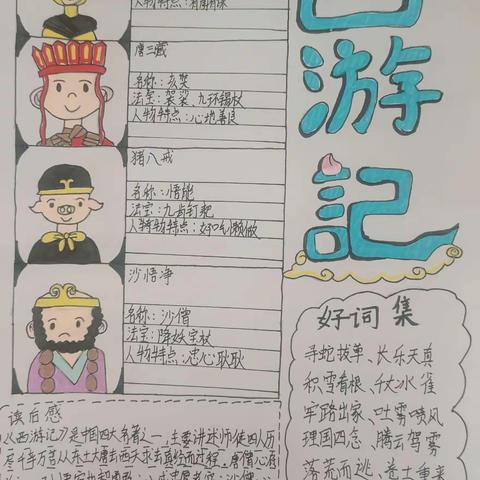 人物特点:
唐三藏
名称:玄奘
法宝:袈裟、九环锡杖
人物特点:心地善良
猪八戒
名称:悟能
法宝:九齿钉耙
人物特点:好吃懒做
沙悟净
名称:沙僧
法宝:降妖宝杖
人物特点:忠心耿耿
西游記
好词集
寻蛇拔草、长乐天真
积雪
出家、吐雾喷风
理国四念、腾云驾雾
落荒而逃、卷土重来
读后感
《西游记》是中国四大名著之一,主要讲述师徒四人历
尽千辛万苦从东土大唐去西天求去真经而过程。唐僧心